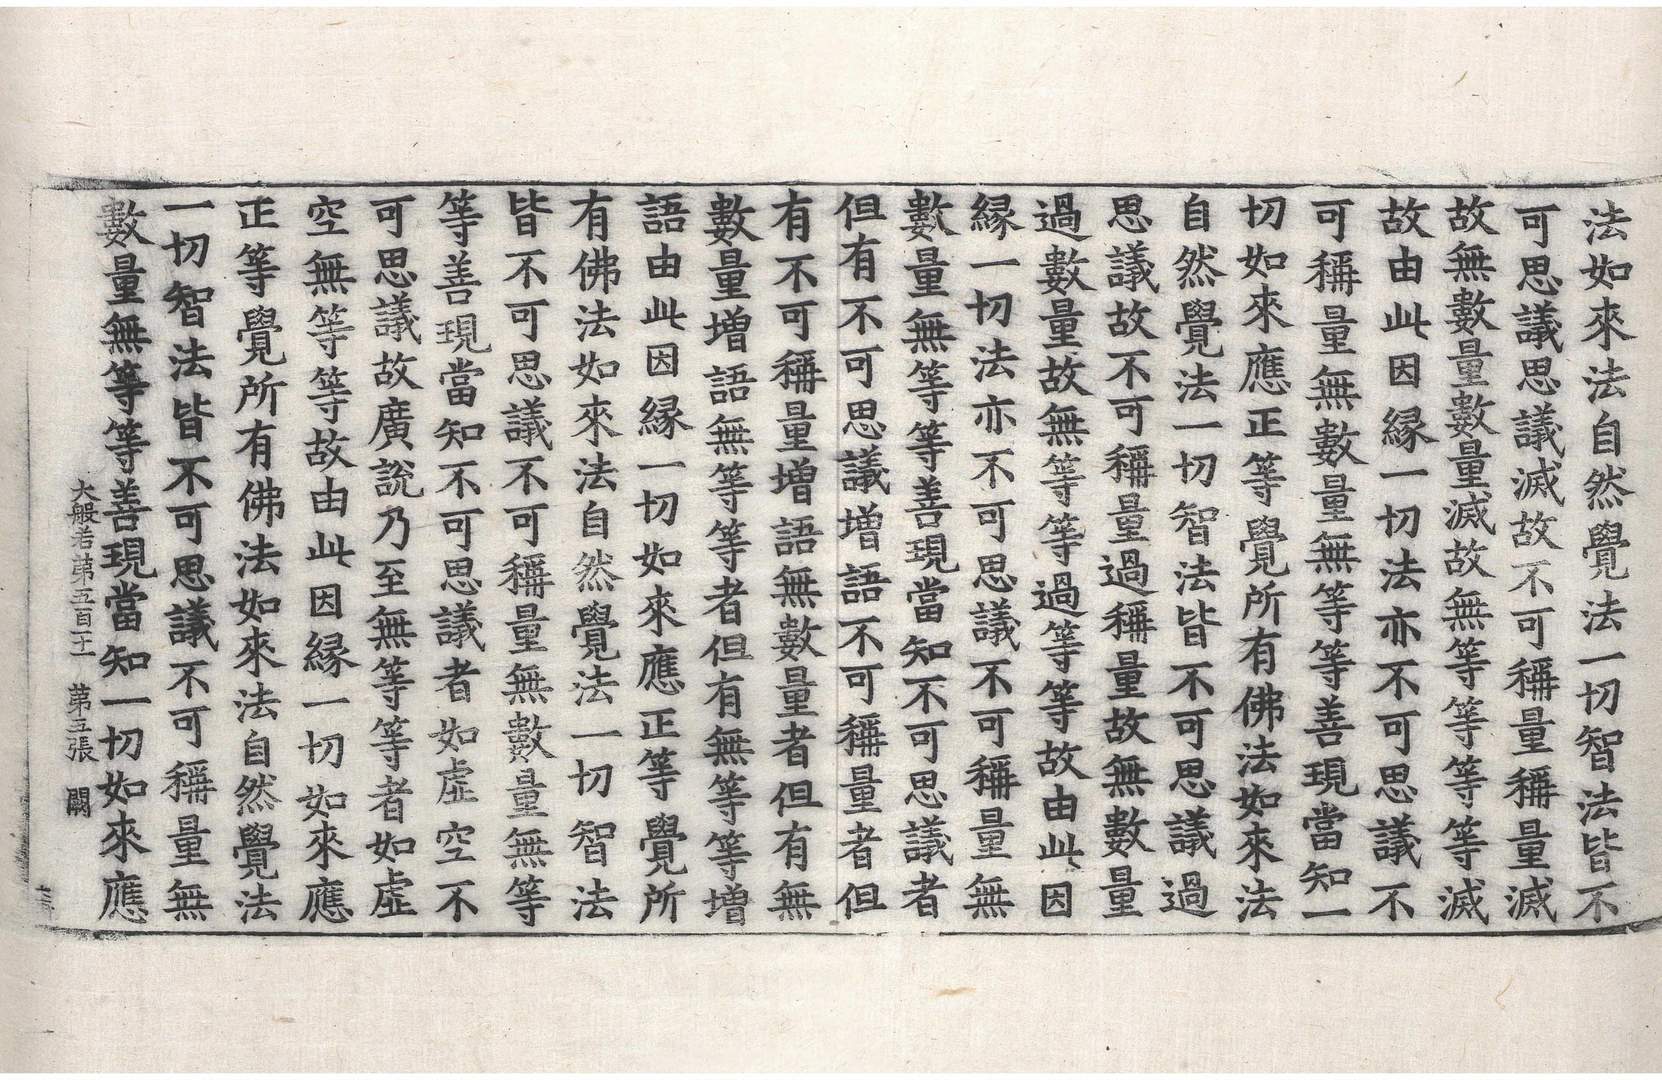 法如來法自然覺法一切智法皆不
可思議思議滅故不可稱量稱量滅
故無數量數量滅故無等等等等滅
故由此因縁一切法亦不可思議不
可稱量無數量無等等善現當知一
切如來應正等覺所有佛法如來法
自然覺法一切智法皆不可思議過
思議故不可稱量過稱量故無數量
過數量故無等等過等等故由此因
縁一切法亦不可思議不可稱量無
數量無等等善現當知不可思議者
但有不可思議増語不可稱量者但
有不可稱量増語無數量者但有無
數量増語無等等者但有無等等増
語由此因縁一切如來應正等覺所
有佛法如來法自然覺法一切智法
皆不可思議不可稱量無數量無等
等善現當知不可思議者如虛空不
可思議故廣說乃至無等等者如虛
空無等等故由此因縁一切如來應
正等覺所有佛法如來法自然覺法
一切智法皆不可思議不可稱量無
數量無等等善現當知一切如來應
大般若第五百十一 第五張 闕